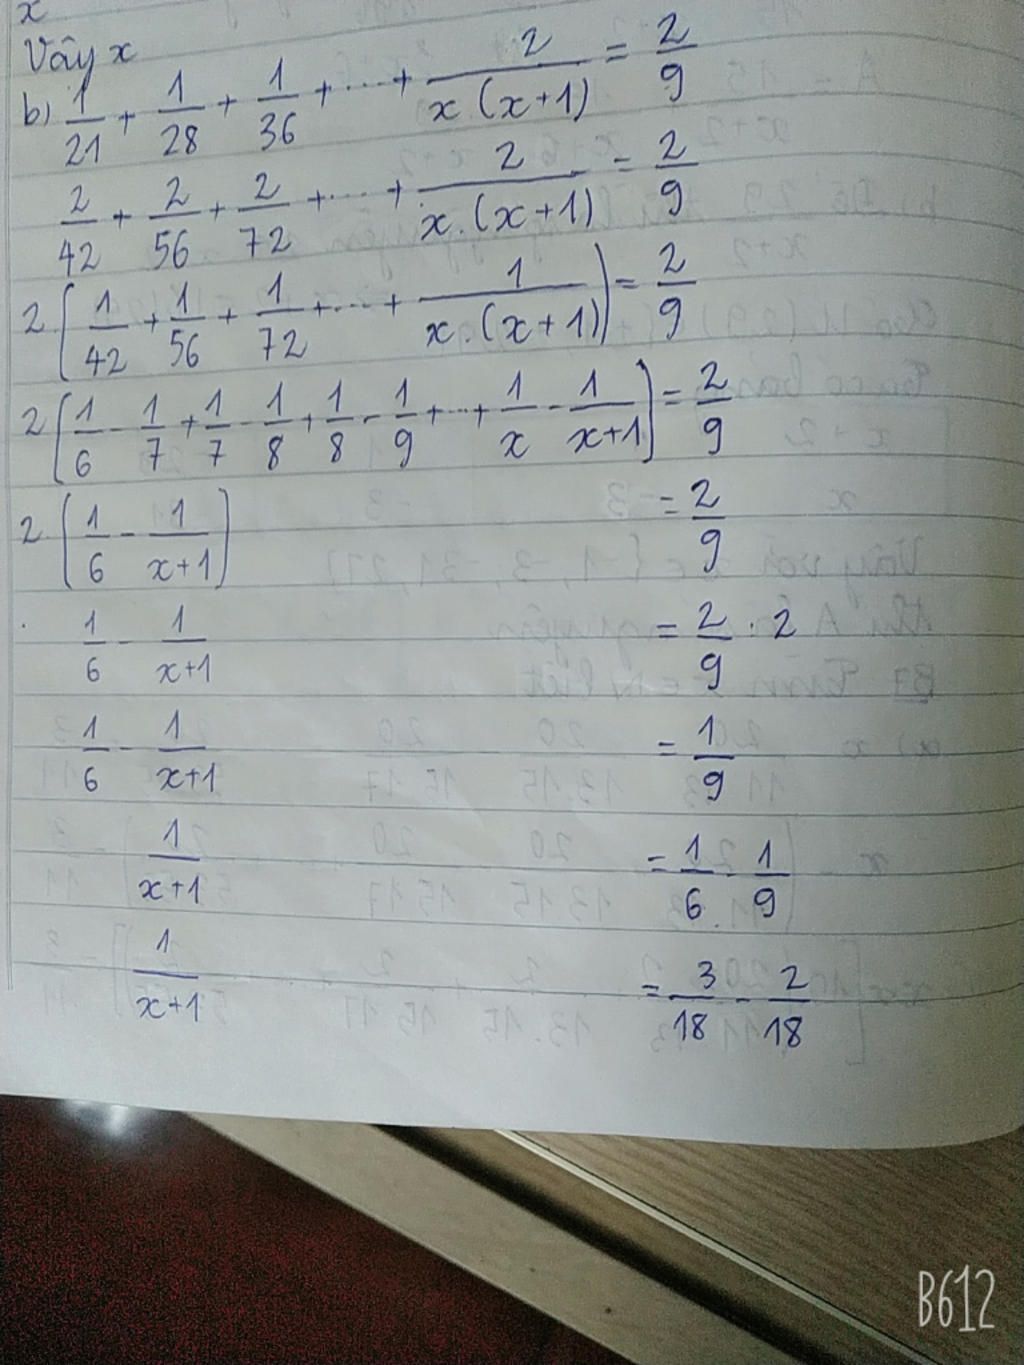 x
Vậy x
b) 1/21 + 1/28 + 1/36 + ... + 2/x.(x+1) = 2/9
2/42 + 2/56 + 2/72 + ... + 2/x.(x+1) = 2/9
2.[1/42 + 1/56 + 1/72 + ... + 1/x.(x+1)] = 2/9
2[1/6 - 1/7 + 1/7 - 1/8 + 1/8 - 1/9 + ... + 1/x - 1/x+1] = 2/9
2.[1/6 - 1/x+1] = 2/9
1/6 - 1/x+1 = 2/9 . 2
1/6 - 1/x+1 = 1/9
1/x+1 = 1/6 - 1/9
1/x+1 = 3/18 - 2/18
B612